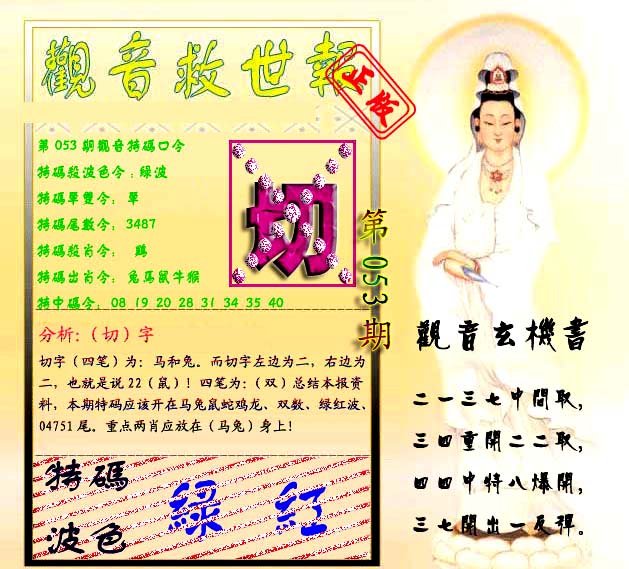 觀音救世報
正版
第053期觀音特碼口令
特碼殺波色令:綠波
特碼單雙令: 單
特碼尾數令: 3487
特碼殺肖令: 鷄
特碼出肖令: 兔馬鼠牛猴
特中碼令: 08 19 20 28 31 34 35 40
切
第053期
分析:（切）字
切字（四笔）为：马和兔。而切字左边为二，右边为
二，也就是说22（鼠）！四笔为：（双）总结本报资
料，本期特码应该开在马兔鼠蛇鸡龙、双数、绿红波、
04751尾。重点两肖应放在（马兔）身上！
特碼
波色
綠 紅
觀音玄機書
二一三七中間取,
三四重開二二取,
四四中特八爆開,
三七開出一反彈。